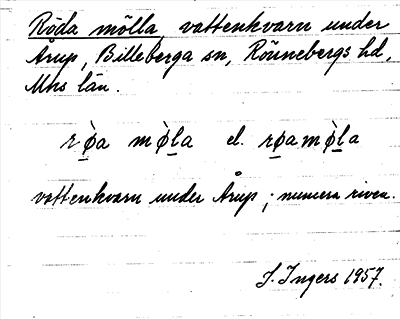 Röda mölla, vattenkvarn under
Årup, Billeberga sn, Rönnebergs hd,
Mhs län.
rø̀a mø̀la el. røamø̀la
vattenkvarn under Årup; numera riven.
I. Ingers 1957.